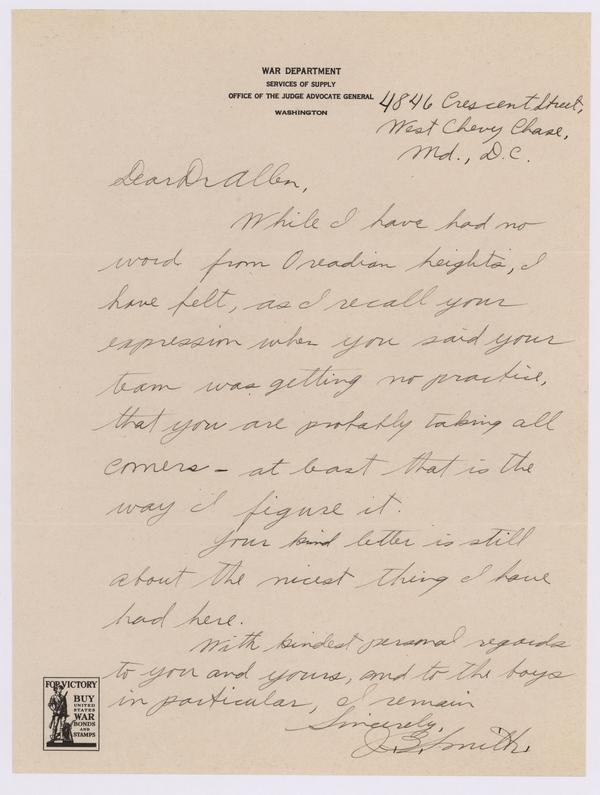 WAR DEPARTMENT
SERVICES OF SUPPLY
OFFICE OF THE JUDGE ADVOCATE GENERAL
WASHINGTON
4846 Crescent Street,
West Chevy Chase,
Md., D.C.
Dear Dr Allen,
While I have had no
word from Oreadian heights, I
have felt, as I recall your
expression when you said your
team was getting no practice,
that you are probably taking all
comers – at least that is the
way I figure it.
Your kind letter is still
about the nicest thing I have
had here.
With kindest personal regards
to you and yours, and to the boys
in particular, I remain
Sincerely,
J.E. Smith.
FOR VICTORY
BUY
UNITED
STATES
WAR
BONDS
AND
STAMPS